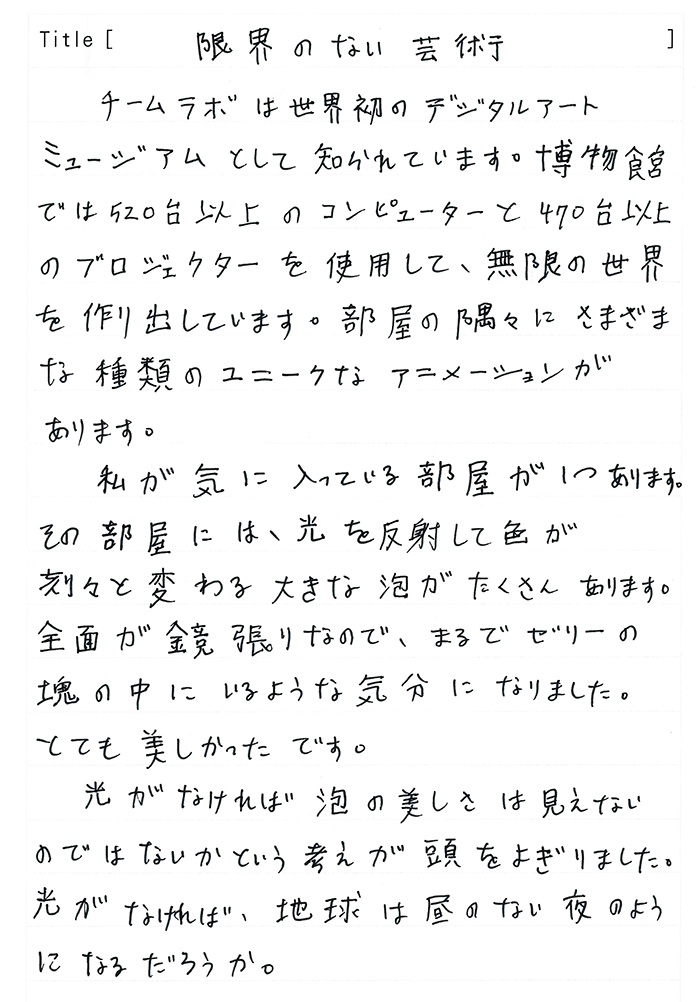 Title [ 限界のない 芸術 ]
チームラボは世界初のデジタルアート
ミュージアムとして知られています。博物館
では520台以上のコンピューターと470台以上
のプロジェクターを使用して、無限の世界
を作り出しています。部屋の隅々にさまざま
な種類のユニークなアニメーションが
あります。
私が気に入っている部屋が1つあります。
その部屋には、光を反射して色が
刻々と変わる大きな泡がたくさんあります。
全面が鏡張りなので、まるでゼリーの
塊の中にいるような気分になりました。
とても美しかったです。
光がなければ泡の美しさは見えない
のではないかという考えが頭をよぎりました。
光がなければ、地球は昼のない夜のよう
になるだろうか。